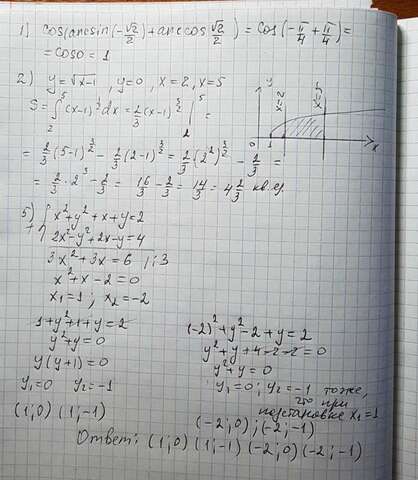 1) cos(arcsin(-√2/2)+arccos √2/2) = cos(-π/4+π/4)=
= cos0 = 1
2) y=√x-1 , y=0 , x=2, x=5
S=∫₂⁵(x-1)^½dx = 2/3(x-1)^3/2 |₂⁵ =
y
x=2
x=5
0 1 x
= 2/3(5-1)^3/2 - 2/3(2-1)^3/2 = 2/3(2²)^3/2 - 2/3 =
= 2/3·2³-2/3 = 16/3-2/3 = 14/3 = 4 2/3 кв.ед.
5) {x²+y²+x+y=2
+ {2x²-y²+2x-y=4
3x²+3x=6 |:3
x²+x-2=0
x₁=1 ; x₂=-2
1+y²+1+y=2
y²+y=0
y(y+1)=0
y₁=0 y₂=-1
(1;0) (1;-1)
(-2)²+y²-2+y=2
y²+y+4-2-2=0
y²+y=0
y₁=0; y₂=-1 тоже,
что при
подстановке x₁=1
(-2;0);(-2;-1)
Ответ: (1;0)(1;-1)(-2;0)(-2;-1)